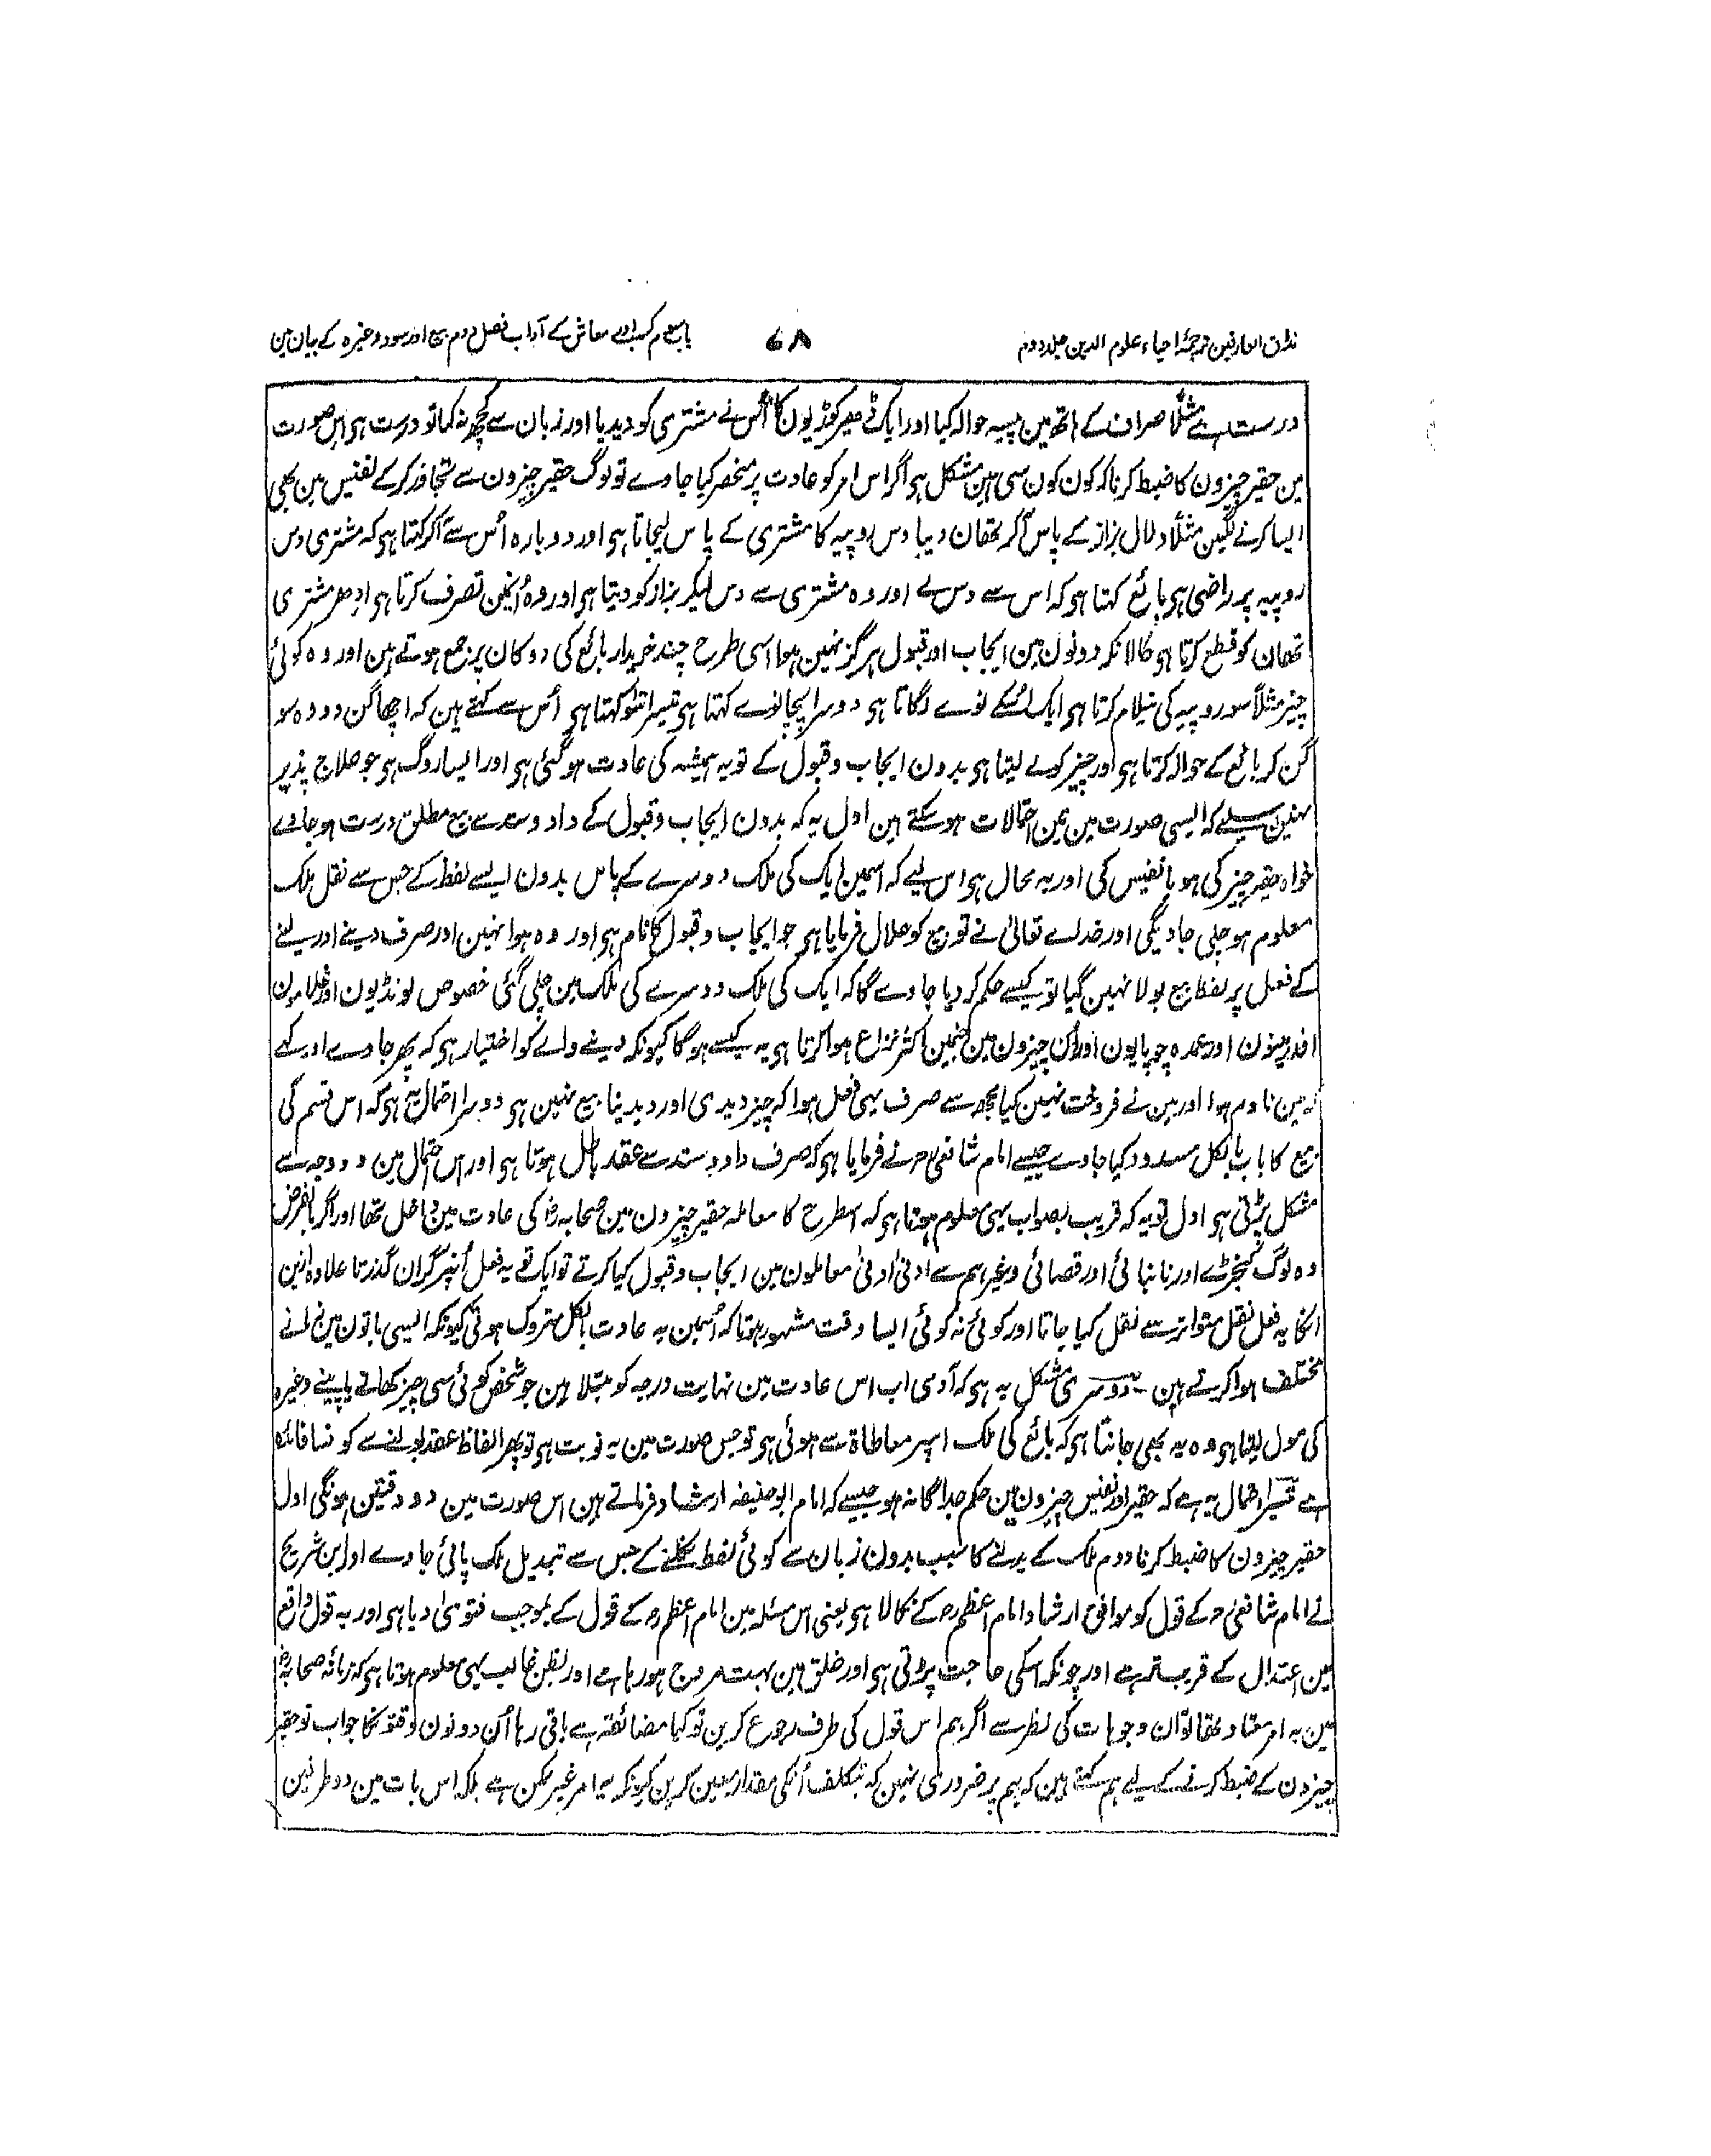 مذاق العارفین ترجمۂ احیاء علوم الدین جلد دوم
۶۸
باب سوم کسب اور معاش کے آداب فصل دوم بیع اور سود وغیرہ کے بیان مین
درست ہے مثلاً صراف کے ہاتھ مین پیسہ حوالہ کیا اور ایک ڈھیر کوڑیون کا اُس نے مشتری کو دیدیا اور زبان سے کچھ نہ کہا تو درست ہی اس صورت
مین حقیر چیزون کا ضبط کرنا کہ کون کون سی ہین مشکل ہی اگر اس امر کو عادت پر منحصر کیا جاوے تو لوگ حقیر چیزون سے تجاوز کرکے نفیس مین بھی
ایسا کرنے لگین مثلاً دلال بزاز کے پاس آکر تھان دیبا دس روپیہ کا مشتری کے پاس لیجاتا ہی اور دوبارہ اُس سے آکر کہتا ہی کہ مشتری دس
روپیہ پر راضی ہی بائع کہتا ہی کہ اس سے دس لے اور وہ مشتری سے دس لیکر بزاز کو دیتا ہی اور وہ اُنمین تصرف کرتا ہی ادھر مشتری
تھان کو قطع کرتا ہی حالانکہ دونون مین ایجاب اور قبول ہرگز نہین ہوا اسی طرح چند خریدار بائع کی دوکان پر جمع ہوتے ہین اور وہ کوئی
چیز مثلاً سو روپیہ کی نیلام کرتا ہی ایک اُسکے نوے لگاتا ہی دوسرا پچانوے کہتا ہی تیسرا سو کہتا ہی اُس سے کہتے ہین کہ اچھا گن دو وہ سو
گن کر بائع کے حوالہ کرتا ہی اور چیز کو لے لیتا ہی بدون ایجاب و قبول کے تو یہ ہمیشہ کی عادت ہوگئی ہی اور ایسا روگ ہی جو علاج پذیر
نہین اسلیے کہ ایسی صورت مین تین احتمالات ہوسکتے ہین اول یہ کہ بدون ایجاب و قبول کے داد و ستد سے بیع مطلق درست ہوجاوے
خواہ حقیر چیز کی ہو یا نفیس کی اور یہ محال ہی اس لیے کہ اسمین ایک کی ملک دوسرے کے پاس بدون ایسے لفظ کے جس سے نقل ملک
معلوم ہو چلی جاویگی اور خداے تعالیٰ نے تو بیع کو حلال فرمایا ہی جو ایجاب و قبول کا نام ہی اور وہ ہوا نہین اور صرف دینے اور لینے
کے فعل پر لفظ بیع بولا نہین گیا تو کیسے حکم کر دیا جاوے گا کہ ایک کی ملک دوسرے کی ملک مین چلی گئی خصوص لونڈیون اور غلامون
اور زمینون اور عمدہ چوپایون اور اُن چیزون مین جنمین اکثر نزاع ہوا کرتا ہی یہ کیسے ہوگا کیونکہ دینے والے کو اختیار ہی کہ پھر جاوے اور کہے
کہ مین نادم ہوا اور مین نے فروخت نہین کیا مجھ سے صرف یہی فعل ہوا کہ چیز دیدی اور دیدینا بیع نہین ہی دوسرا احتمال یہ ہی کہ اس قسم کی
بیع کا باب بالکل مسدود کیا جاوے جیسے امام شافعیؒ نے فرمایا ہی کہ صرف داد و ستد سے عقد باطل ہوتا ہی اور اس احتمال مین دو وجہ سے
مشکل پڑتی ہی اول تو یہ کہ قریب بصواب یہی معلوم ہوتا ہی کہ اسطرح کا معاملہ حقیر چیزون مین صحابہؓ کی عادت مین داخل تھا اور اگر بالفرض
وہ لوگ کنجڑے اور نانبائی اور قصائی وغیرہم سے ادنیٰ ادنیٰ معاملون مین ایجاب و قبول کیا کرتے تو ایک تو یہ فعل اُنپر گران گذرتا علاوہ ازین
انکا یہ فعل نقل متواتر سے نقل کیا جاتا اور کوئی نہ کوئی ایسا وقت مشہور ہوتا کہ اُسمین یہ عادت بالکل متروک ہوتی کیونکہ ایسی باتون مین زمانے
مختلف ہوا کرتے ہین - دوسری مشکل یہ ہی کہ آدمی اب اس عادت مین نہایت درجہ کو مبتلا ہین جو شخص کوئی سی چیز کھانے یا پینے وغیرہ
کی مول لیتا ہی وہ یہ بھی جانتا ہی کہ بائع کی ملک اسپر معاطاۃ سے ہوئی ہی تو جس صورت مین یہ نوبت ہی تو پھر الفاظ عقد بولنے سے کونسا فائدہ
ہے تیسرا احتمال یہ ہے کہ حقیر اور نفیس چیزون مین حکم جداگانہ ہو جیسے کہ امام ابوحنیفہ ارشاد فرماتے ہین اس صورت مین دو دقتین ہونگی اول
حقیر چیزون کا ضبط کرنا دوم ملک کے بدلنے کا سبب بدون زبان سے کوئی لفظ نکلنے کے جس سے تبدیل ملک پائی جاوے اور ابن شریح
نے امام شافعیؒ کے قول کو موافق ارشاد امام اعظمؒ کے نکالا ہی یعنی اس مسئلہ مین امام اعظمؒ کے قول کے بموجب فتویٰ دیا ہی اور یہ قول واقع
مین اعتدال کے قریب تر ہے اور چونکہ اسکی حاجت پڑتی ہی اور خلق مین بہت مروج ہو رہا ہے اور بظن غالب یہی معلوم ہوتا ہی کہ زمانہ صحابہؓ
مین یہ امر معتاد تھا تو ان وجوہات کی نظر سے اگر ہم اس قول کی طرف رجوع کرین تو کیا مضائقہ ہے باقی رہا اُن دونون دقتونکا جواب تو حقیر
چیزون کے ضبط کرنے کے لیے ہم کہتے ہین کہ ہم پر ضروری نہین کہ بتکلف اُنکی مقدار معین کرین کیونکہ یہ امر غیر ممکن ہے بلکہ اس بات مین دو طرفین